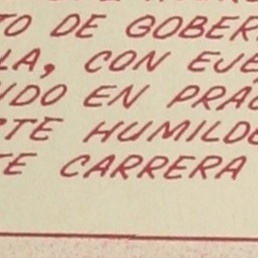 TO DE GOBER
LA, CON EJE
NDO EN PRÁC
STE HUMILDE
TE CARRERA